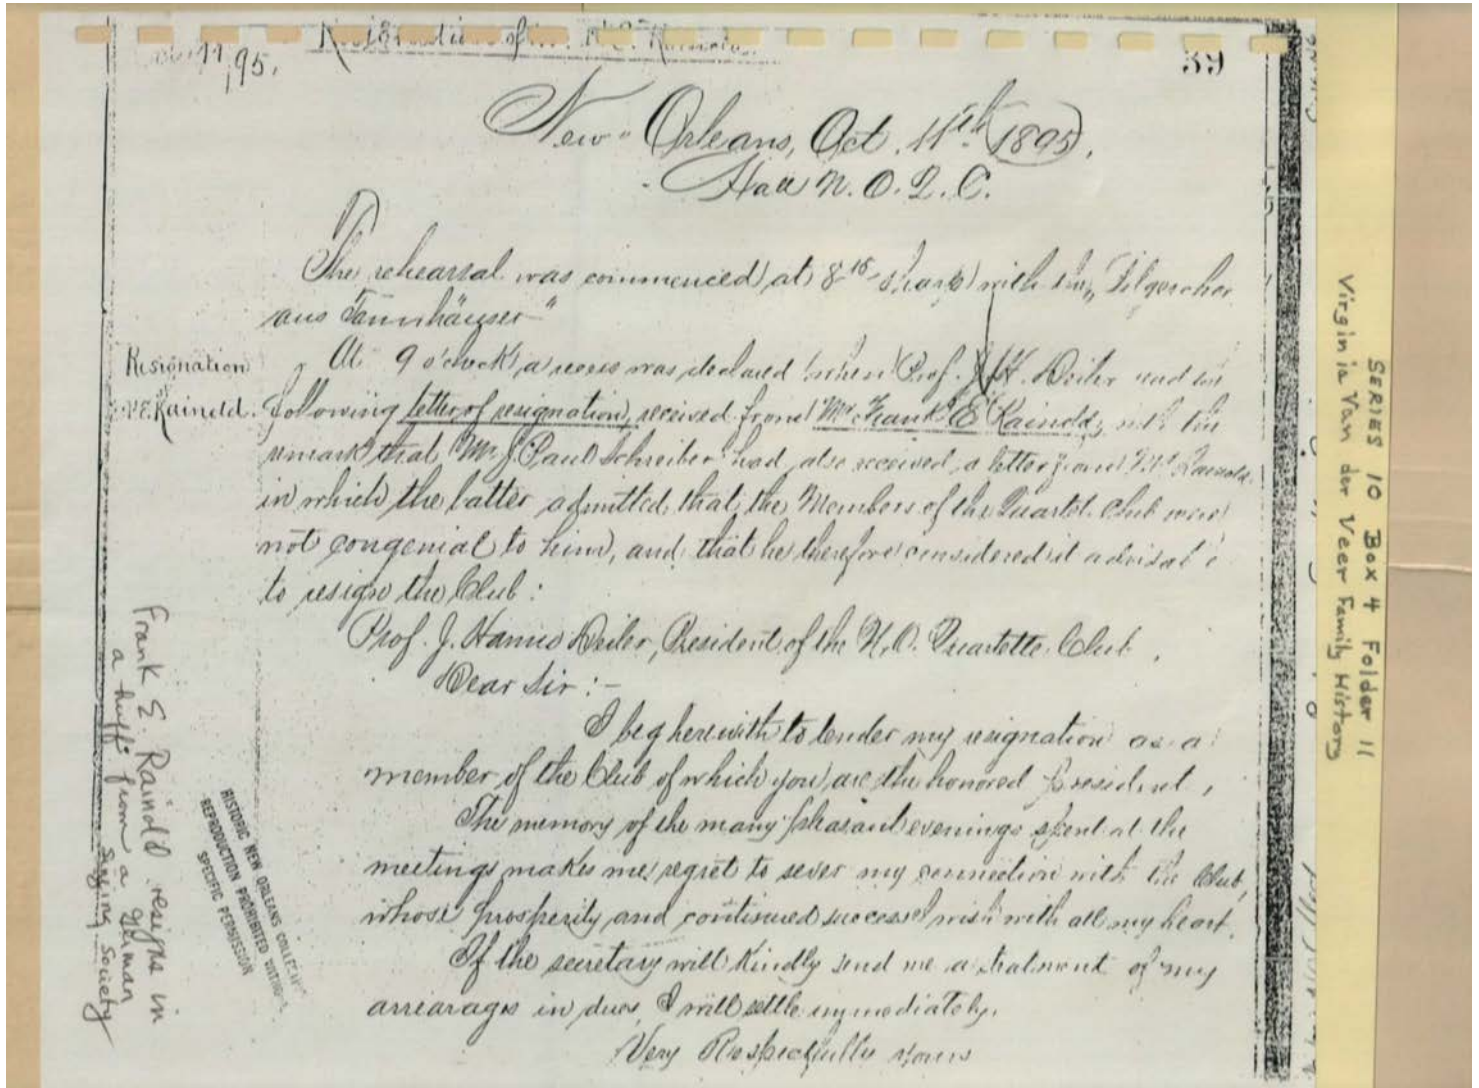 Resignation of Mr. F. E. Rainold.
11, 95.
39
New Orleans, Oct. 11th 1895.
Hall N. O. Q. C.
The rehearsal was commenced at 8 15 sharp with the „Pilgerchor
aus Tannhäuser"
Resignation
F. E. Rainold.
At 9 o'clock a recess was declared when Prof. J. H. Deiler read the
following letter of resignation, received from Mr. Frank E. Rainold, with the
remark that Mr. J. Paul Schreiber had also received a letter from Mr. Rainold,
in which the latter admitted that the Members of the Quartet Club were
not congenial to him, and that he therefore considered it advisable
to resign the Club :
Prof. J. Hanno Deiler, President of the N. O. Quartette Club.
Dear Sir :-
I beg herewith to tender my resignation as a
member of the Club of which you are the honored President,
The memory of the many pleasant evenings spent at the
meetings makes me regret to sever my connection with the Club,
whose prosperity and continued success I wish with all my heart.
If the secretary will kindly send me a statment of my
arrearages in dues, I will settle immediately.
Very Respectfully yours
Frank E. Rainold resigns in
a huff from a German
Singing Society
HISTORIC NEW ORLEANS COLLECTION
REPRODUCTION PROHIBITED WITHOUT
SPECIFIC PERMISSION
SERIES 10 Box 4 Folder 11
Virginia Van der Veer Family History